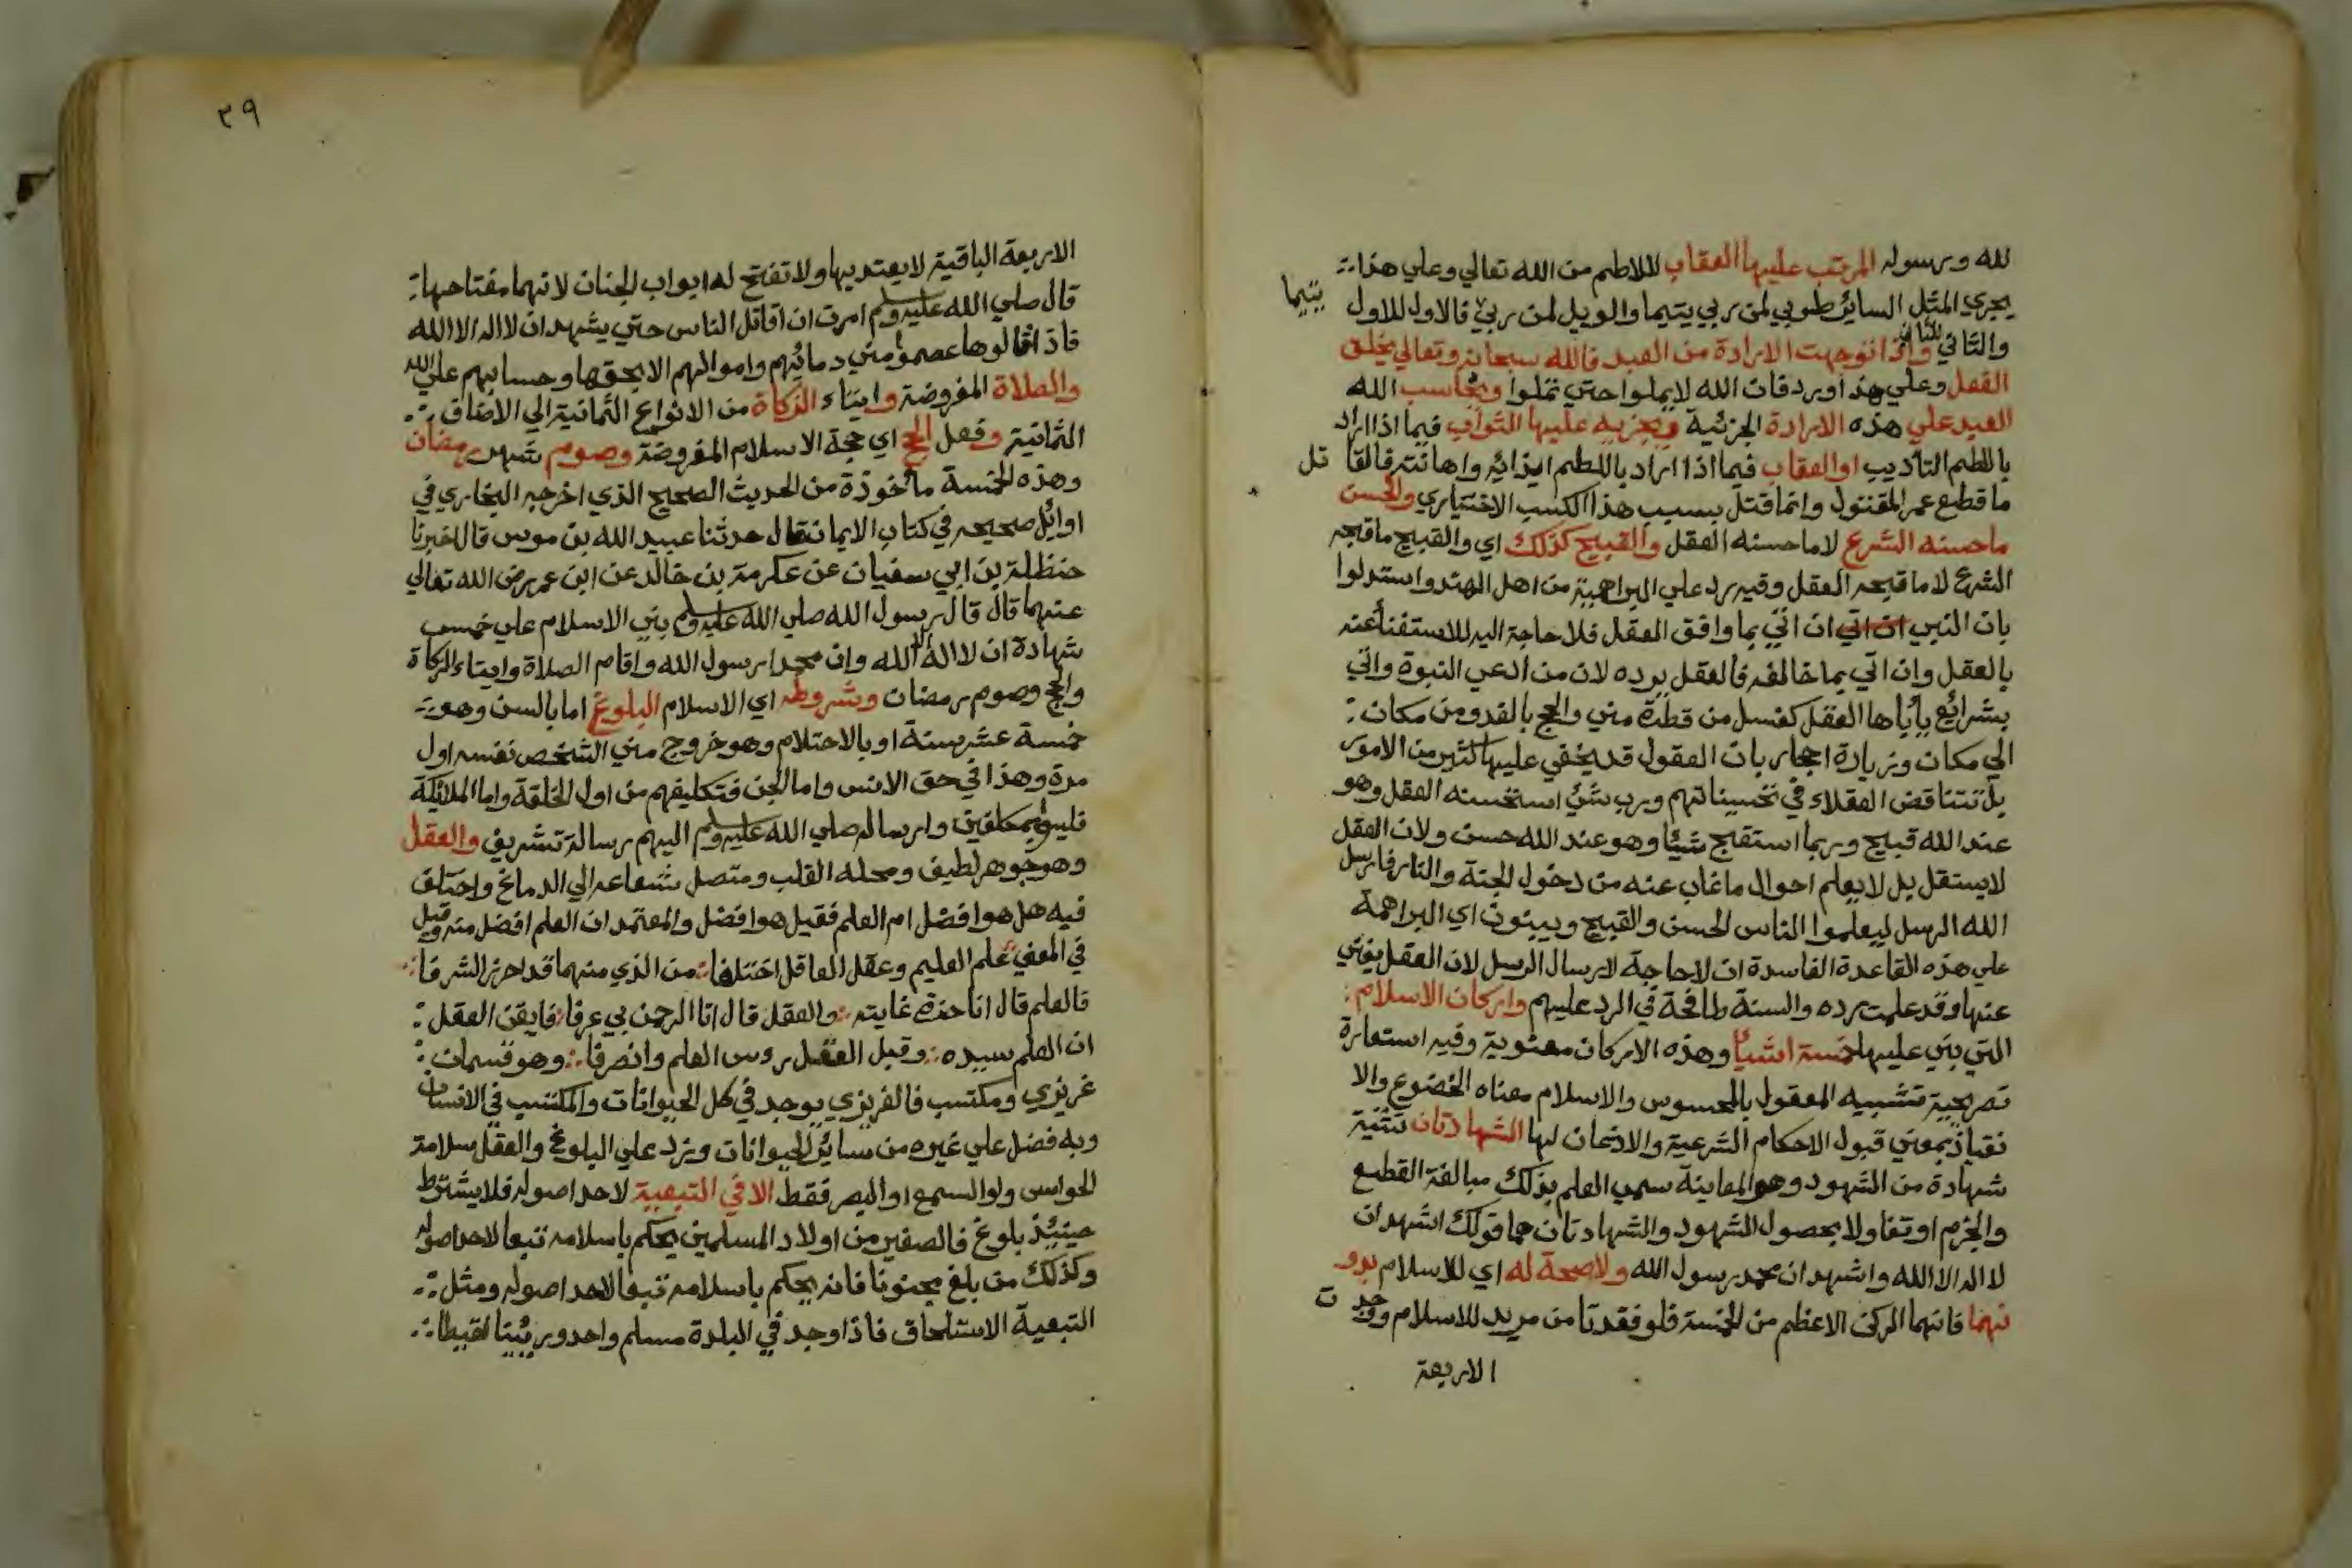 لله ورسوله المرتب عليها العقاب لللاطم من الله تعالي وعلي هذا
يجري المثل الساير طوبي لمن ربي يتيما والويل لمن ربي فالاول للاول يتيما
والثاني للثاني واذا توجهت الارادة من العبد فالله سبحانه وتعالي يخلق
الفعل وعلي هذا ورد فان الله لا يملوا حتي تملوا ويحاسب الله
العبد علي هذه الارادة الجزئية ويجزيه عليها الثواب فيما اذا اراد
باللطم التأديب او العقاب فيما اذا اراد باللطم ايذائه واهانته فالقا تل
ما قطع عمر المقتول وانما قتل بسبب هذا الكسب الاختياري والحسن
ما حسنه الشرع لا ما حسنه العقل والقبيح كذلك اي والقبيح ما قبحه
الشرع لا ما قبحه العقل وفيه رد علي البراهمية من اهل الهند واستدلوا
بان النبي ان اتي ان اتي بما وافق العقل فلا حاجة اليه للاستغناء عنه
بالعقل وان اتي بما خالفه فالعقل يرده لان من ادعي النبوة واتي
بشرائع يأباها العقل كغسل من قطرة مني والحج بالغدو من مكان
الي مكان وزيارة احجار بان العقول قد يخفي عليها كثير من الامور
بل تتناقض العقلاء في تحسيناتهم ورب شئ استحسنه العقل وهو
عند الله قبيح وربما استقبح شيئا وهو عند الله حسن ولان العقل
لا يستقل بل لا يعلم احوال ما غاب عنه من دخول الجنة والنار فارسل
الله الرسل ليعلموا الناس الحسن والقبيح ويبنون اي البراهمة
علي هذه القاعدة الفاسدة ان لا حاجة لارسال الرسل لان العقل يغني
عنها وقد علمت رده والسنة طافحة في الرد عليهم واركان الاسلام
التي بني عليها خمسة اشيا وهذه الاركان معنوية وفيه استعارة
تصريحية تشبيه المعقول بالمحسوس والاسلام معناه الخضوع والا
نقياد بمعني قبول الاحكام الشرعية والاذعان لها الشهادتان تثنية
شهادة من الشهود وهو المعاينة سمي العلم بذلك مبالغة القطع
والجزم او تفاولا بحصول الشهود والشهادتان هما قولك اشهد ان
لا اله الا الله واشهد ان محمد رسول الله ولا صحة له اي للاسلام بدو
نهما فانهما الركن الاعظم من الخمسة فلو فقدتا من مريد للاسلام ووجد ت
الاربعة
٣٩
الاربعة الباقية لا يعتد بها ولا تفتح له ابواب الجنان لانهما مفتاحها
قال صلي الله عليه وسلم امرت ان اقاتل الناس حتي يشهد ان لا اله الا الله
فاذا قالوها عصموا مني دمائهم واموالهم الا بحقها وحسابهم علي الله
والصلاة المفروضة وايتاء الزكاة من الانواع الثمانية الي الاصناف
الثمانية وفعل الحج اي حجة الاسلام المفروضة وصوم شهر رمضان
وهذه الخمسة مأخوذة من الحديث الصحيح الذي اخرجه البخاري في
اوائل صحيحه في كتاب الايمان فقال حدثنا عبيد الله بن موسي قال اخبرنا
حنظلة بن ابي سفيان عن عكرمة بن خالد عن ابن عمر رضي الله تعالي
عنهما قال قال رسول الله صلي الله عليه وسلم بني الاسلام علي خمس
شهادة ان لا اله الا الله وان محمدا رسول الله واقام الصلاة وايتاء الزكاة
والحج وصوم رمضان وشروطه اي الاسلام البلوغ اما بالسن وهو
خمسة عشر سنة او بالاحتلام وهو خروج مني الشخص نفسه اول
مرة وهذا في حق الانس واما الجن فتكليفهم من اول الخلقة واما الملائكة
فليسوا بمكلفين وارساله صلي الله عليه وسلم اليهم رسالة تشريف والعقل
وهو جوهر لطيف ومحله القلب ومتصل شعاعه الي الدماغ واختلف
فيه هل هو افضل ام العلم فقيل هو افضل والمعتمد ان العلم افضل منه وقيل
في المعني علم العليم وعقل العاقل اختلفا من الذي منهما قد احرز الشرفا
فالعلم قال انا حزت غايته والعقل قال انا الرحمن بي عرفا فايقن العقل
ان العلم سيده وقبل العقل روس العلم وانصرفا وهو قسمان
غريزي ومكتسب فالغريزي يوجد في كل الحيوانات والمكتسب في الانسان
وبه فضل علي غيره من سائر الحيوانات وزد علي البلوغ والعقل سلامة
الحواس ولو السمع او البصر فقط الا في التبعية لاحد اصوله فلا يشترط
حينئذ بلوغ فالصغير من اولاد المسلمين يحكم باسلامه تبعا لاحد اصوله
وكذلك من بلغ مجنونا فانه يحكم باسلامه تبعا لاحد اصوله ومثل
التبعية الاستلحاق فاذا وجد في البلدة مسلم واحد وربينا لقيطا